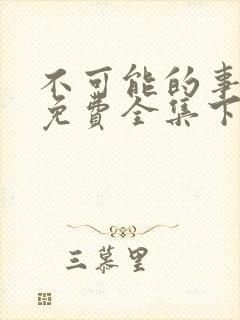 不可能的事
免费全集下
三慕里